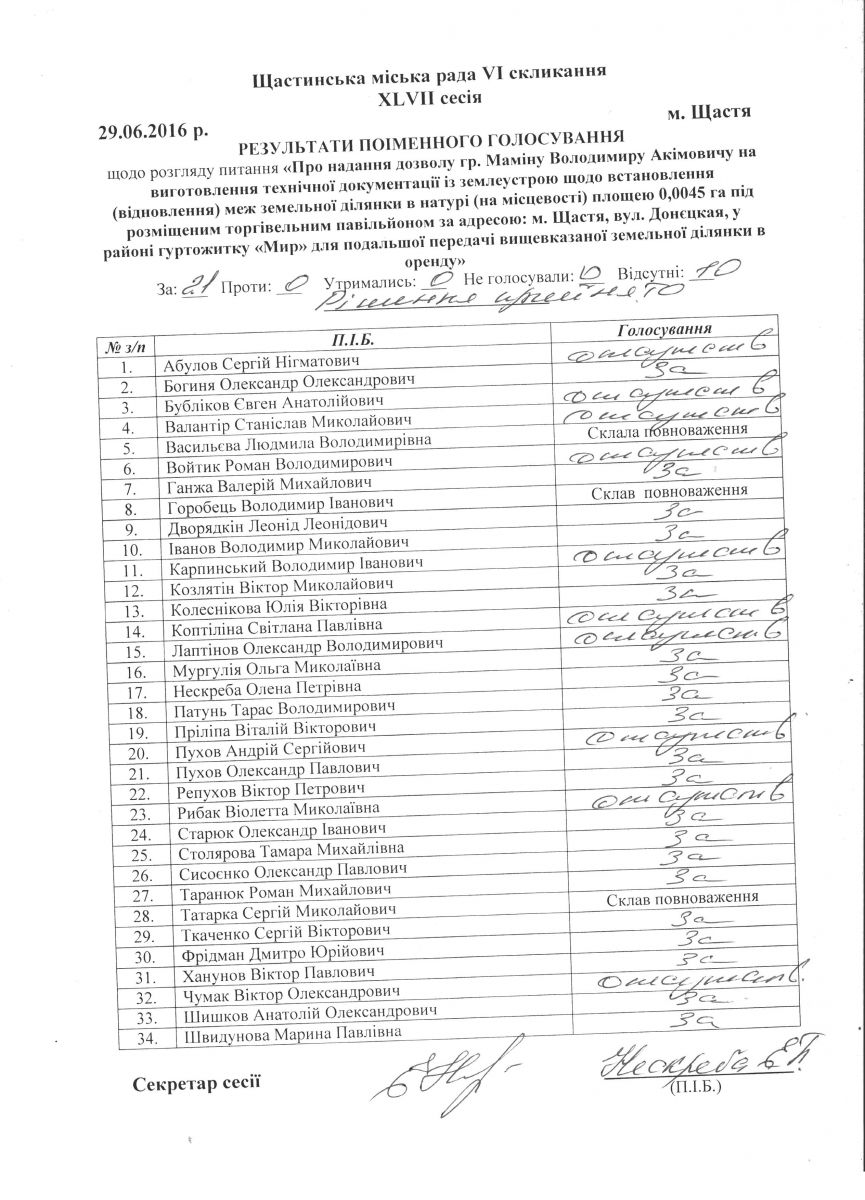 Щастинська міська рада VI скликання
XLVII сесія
29.06.2016 р. м. Щастя
РЕЗУЛЬТАТИ ПОІМЕННОГО ГОЛОСУВАННЯ
щодо розгляду питання «Про надання дозволу гр. Маміну Володимиру Акімовичу на
виготовлення технічної документації із землеустрою щодо встановлення
(відновлення) меж земельної ділянки в натурі (на місцевості) площею 0,0045 га під
розміщеним торгівельним павільйоном за адресою: м. Щастя, вул. Донєцкая, у
районі гуртожитку «Мир» для подальшої передачі вищевказаної земельної ділянки в
оренду»
За: 21 Проти: 0 Утримались: 0 Не голосували: 0 Відсутні: 10
Рішення прийнято
№ з/п П.І.Б. Голосування
1. Абулов Сергій Нігматович отсутств
2. Богиня Олександр Олександрович За
3. Бубліков Євген Анатолійович отсутств
4. Валантір Станіслав Миколайович отсутств
5. Васильєва Людмила Володимирівна Склала повноваження
6. Войтик Роман Володимирович отсутств
7. Ганжа Валерій Михайлович За
8. Горобець Володимир Іванович Склав повноваження
9. Дворядкін Леонід Леонідович За
10. Іванов Володимир Миколайович За
11. Карпинський Володимир Іванович отсутств
12. Козлятін Віктор Миколайович За
13. Колеснікова Юлія Вікторівна За
14. Коптіліна Світлана Павлівна отсутств
15. Лаптінов Олександр Володимирович отсутств
16. Мургулія Ольга Миколаївна За
17. Нескреба Олена Петрівна За
18. Патунь Тарас Володимирович За
19. Пріліпа Віталій Вікторович За
20. Пухов Андрій Сергійович отсутств
21. Пухов Олександр Павлович За
22. Репухов Віктор Петрович За
23. Рибак Віолетта Миколаївна отсутств
24. Старюк Олександр Іванович За
25. Столярова Тамара Михайлівна За
26. Сисоєнко Олександр Павлович За
27. Таранюк Роман Михайлович За
28. Татарка Сергій Миколайович Склав повноваження
29. Ткаченко Сергій Вікторович За
30. Фрідман Дмитро Юрійович За
31. Ханунов Віктор Павлович За
32. Чумак Віктор Олександрович отсутств.
33. Шишков Анатолій Олександрович За
34. Швидунова Марина Павлівна За
Секретар сесії Нескреба Е.П.
(П.І.Б.)